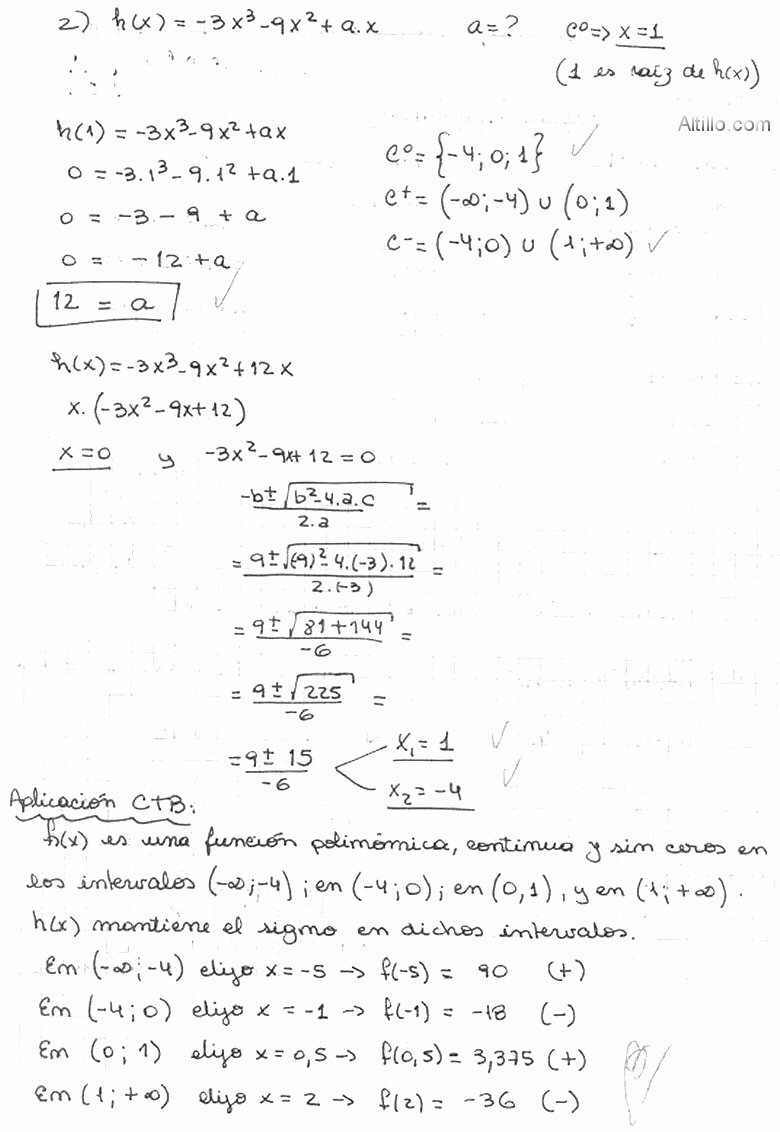 2) h(x) = -3x³ - 9x² + a.x    a = ?    C⁰ => x = 1
(1 es raíz de h(x))
Altillo.com
h(1) = -3x³ - 9x² + ax
0 = -3.1³ - 9.1² + a.1
0 = -3 - 9 + a
0 = -12 + a
12 = a
C⁰ = {-4; 0; 1}
C⁺ = (-∞; -4) ∪ (0; 1)
C⁻ = (-4; 0) ∪ (1; +∞)
h(x) = -3x³ - 9x² + 12x
x. (-3x² - 9x + 12)
x = 0 y -3x² - 9x + 12 = 0
-b ± √(b² - 4.a.c) / 2.a =
= 9 ± √((9)² - 4.(-3).12) / 2.(-3) =
= 9 ± √(81 + 144) / -6 =
= 9 ± √225 / -6 =
= 9 ± 15 / -6
x₁ = 1
x₂ = -4
Aplicación CTB:
h(x) es una función polimómica, continua y sin ceros en
los intervalos (-∞; -4); en (-4; 0); en (0, 1), y en (1; +∞).
h(x) mantiene el signo en dichos intervalos.
En (-∞; -4) elijo x = -5 → f(-5) = 90 (+)
En (-4; 0) elijo x = -1 → f(-1) = -18 (-)
En (0; 1) elijo x = 0,5 → f(0,5) = 3,375 (+)
En (1; +∞) elijo x = 2 → f(2) = -36 (-)